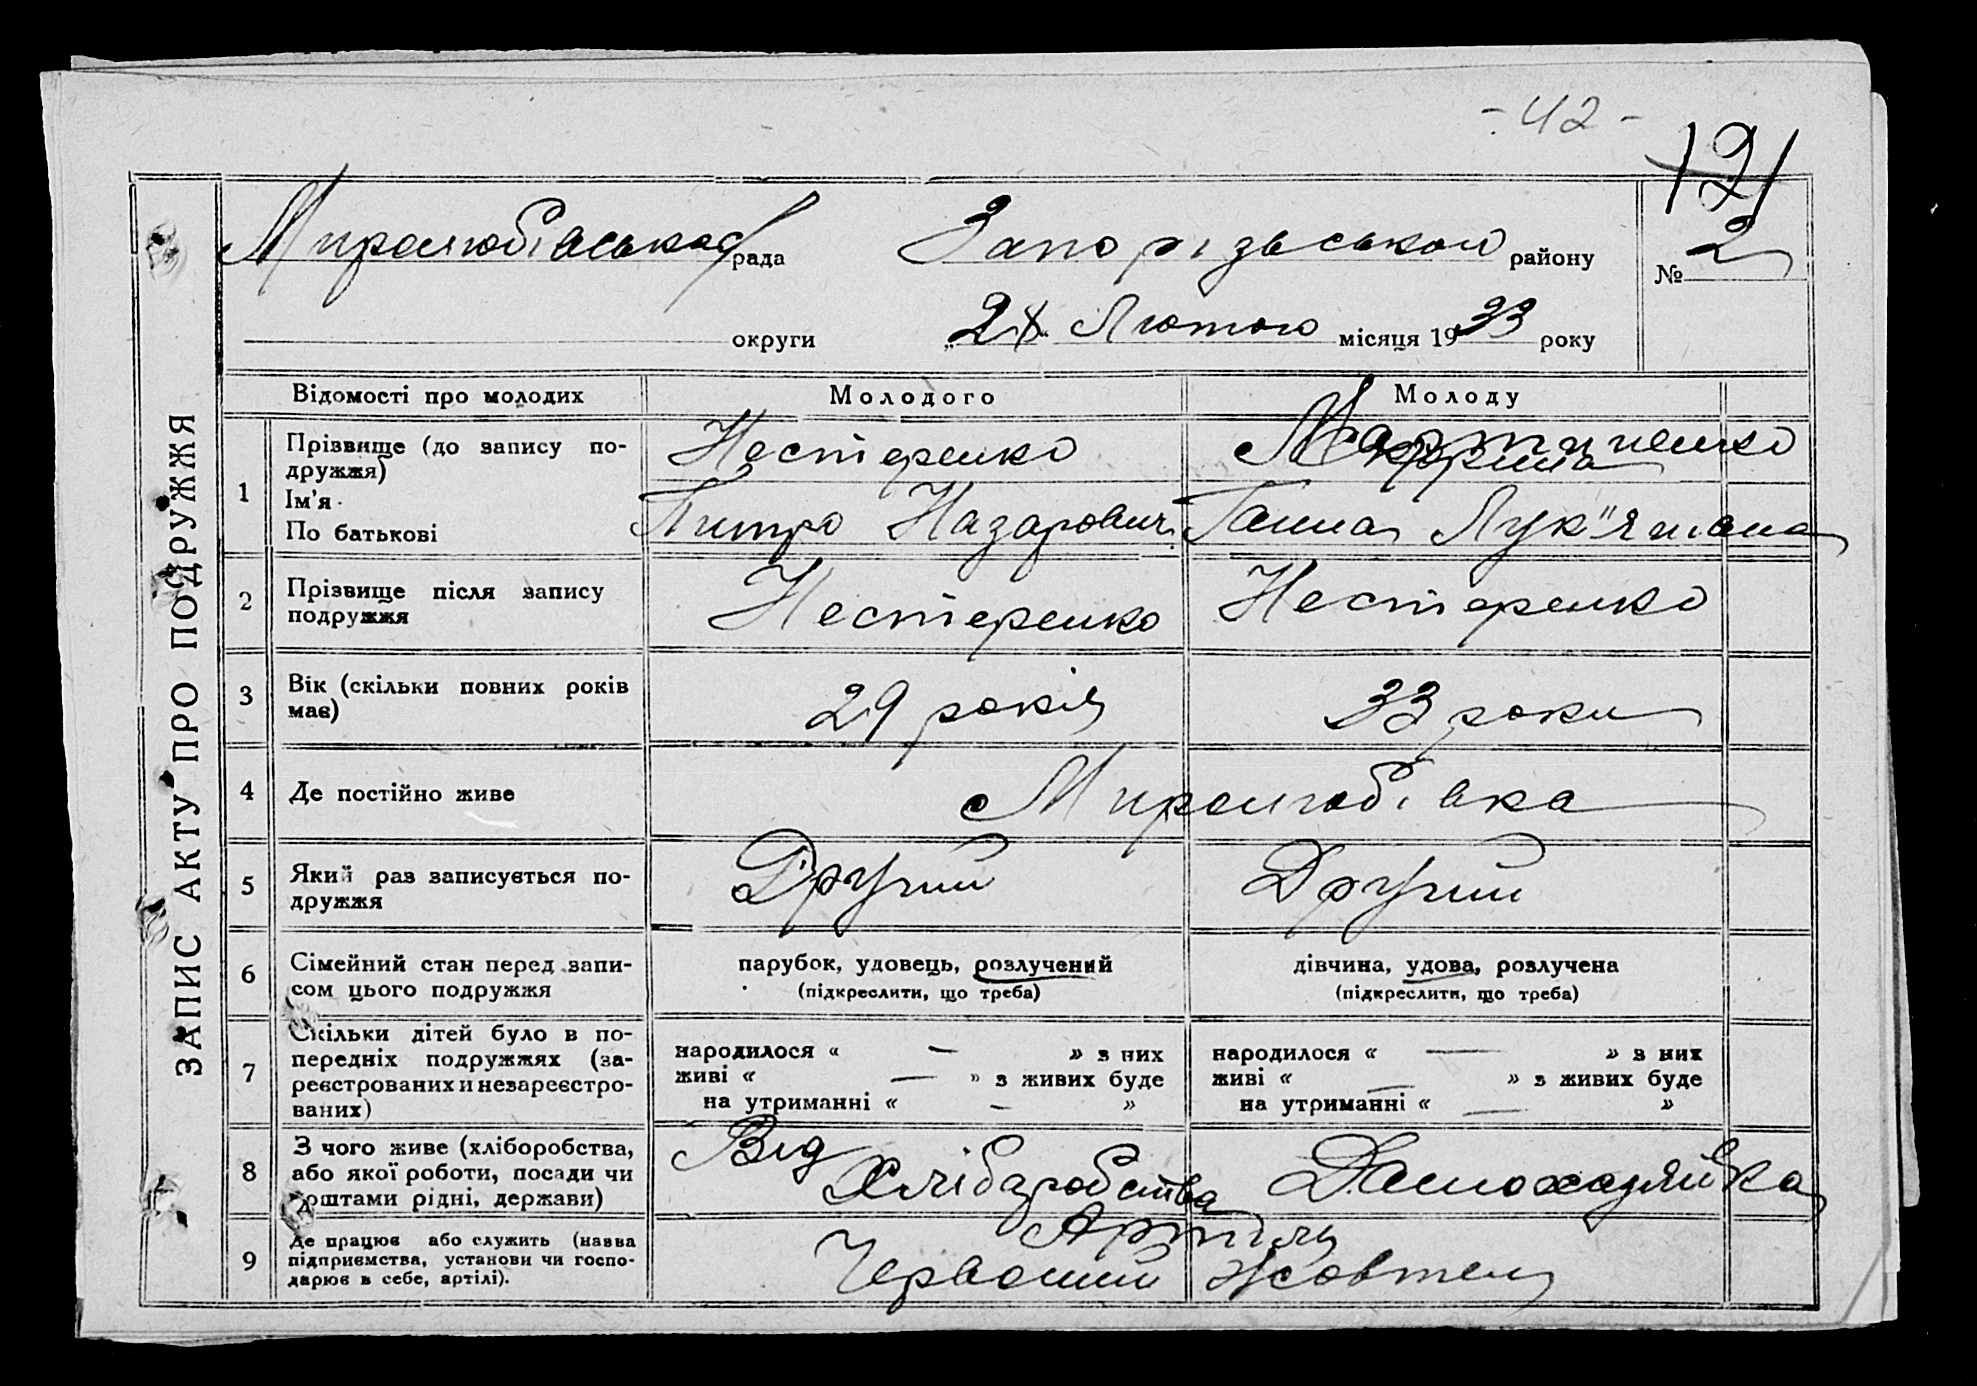 - 42 -
121
Миролюбівська рада Запорізького району № 2
округи „28“ Лютого місяця 1933 року
ЗАПИС АКТУ ПРО ПОДРУЖЖЯ
Відомості про молодих Молодого Молоду
1 Прізвище (до запису по-
дружжя)
Ім'я
По батькові
Нестеренко Мартиненко
Питро Назарович Ганна Лук"янівна
2 Прізвище після запису
подружжя
Нестеренко Нестеренко
3 Вік (скільки повних років
має)
29 років 33 роки
4 Де постійно живе Миролюбівка
5 Який раз записується по-
дружжя
Другий Другий
6 Сімейний стан перед запи-
сом цього подружжя
парубок, удовець, розлучений
(підкреслити, що треба)
дівчина, удова, розлучена
(підкреслити, що треба)
7 Скільки дітей було в по-
передніх подружжях (за-
реєстрованих и незареєстро-
ваних)
народилося « — » з них
живі « — » з живих буде
на утриманні « — »
народилося « — » з них
живі « — » з живих буде
на утриманні « — »
8 З чого живе (хліборобства,
або якої роботи, посади чи
коштами рідні, держави)
Від
Хліборобства Домохазяйка
9 Де працює або служить (назва
підприємства, установи чи госпо-
дарює в себе, артілі).
Артіль
Червоний Жовтень